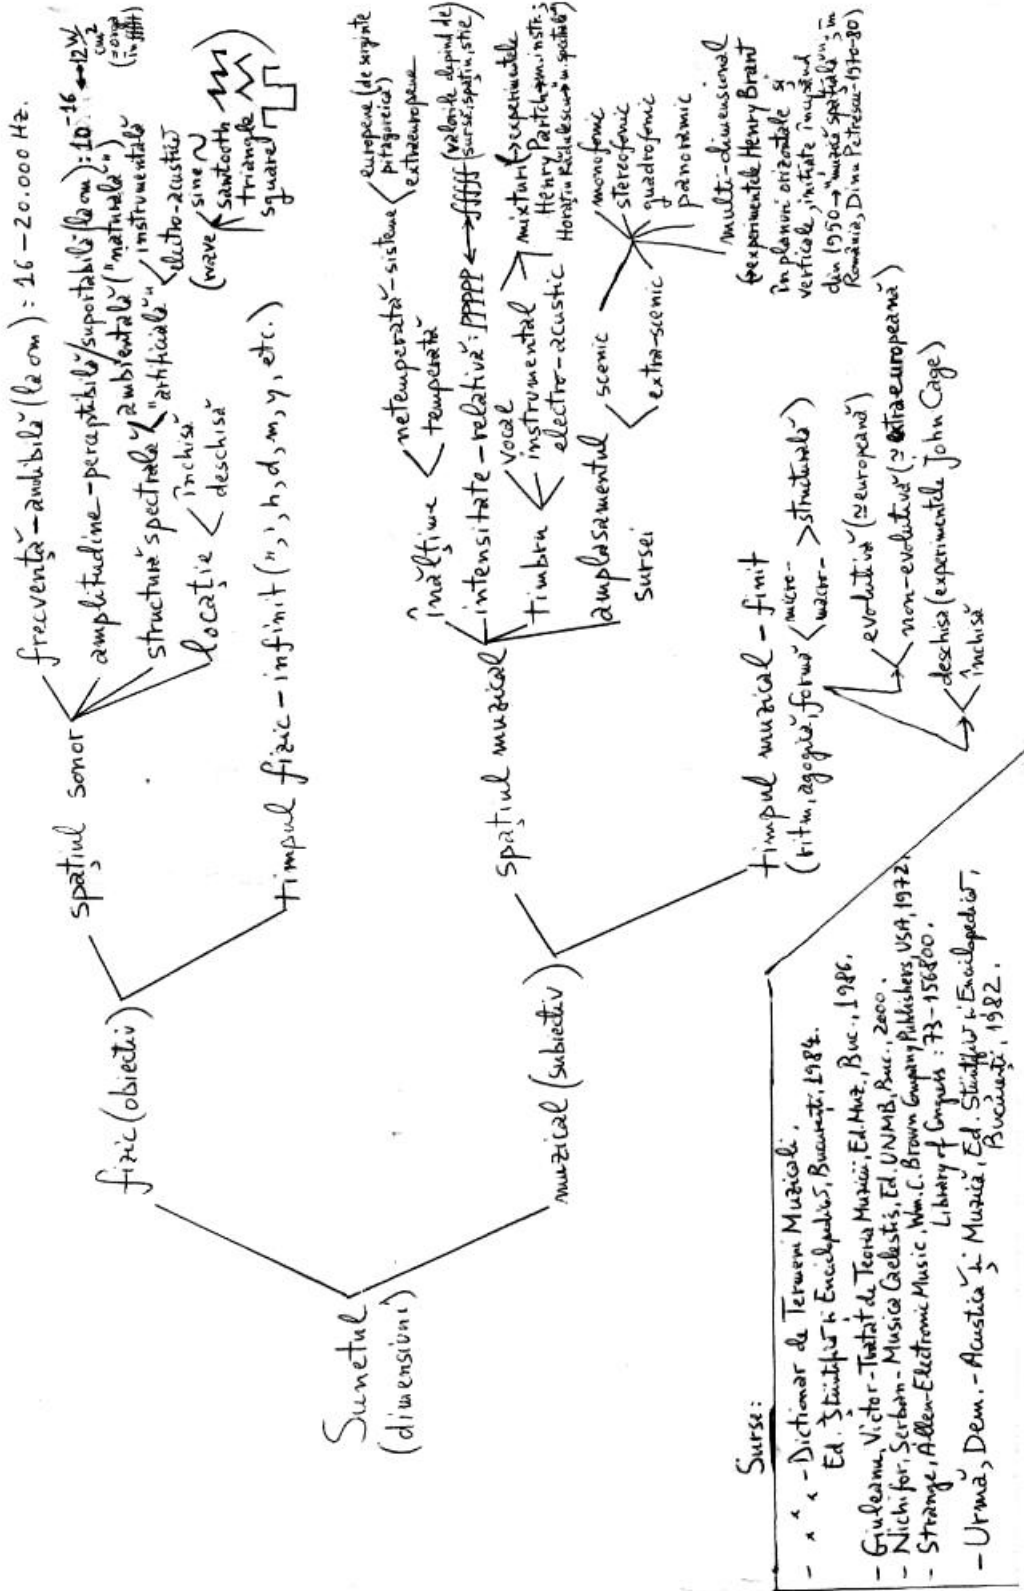 Sunetul
(dimensiuni)
fizic (obiectiv)
spațiul sonor
frecvență-audibilă (la om): 16-20.000 Hz.
amplitudine-perceptibilă/suportabilă (la om): 10⁻¹⁶ ↔ 12 W/cm²
structură spectrală
"naturală"
ambientală
"artificială"
instrumentală
electro-acustică
(wave
sine ~
sawtooth
triangle
square
)
locație
închisă
deschisă
timpul fizic-infinit (", ', h, d, m, y, etc.)
muzical (subiectiv)
spațiul muzical
înălțime
netemperată-sisteme
europene (de sorginte
pitagoreică)
extraeuropene
temperată
intensitate-relativă: ppppp ↔ fffff (valorile depind de
sursă, spațiu, stil)
timbru
vocal
instrumental
electro-acustic
mixturi (experimentele
Henry Partch → instr.;
Horațiu Rădulescu →
amplasamentul
sursei
scenic
extra-scenic
monofonic
stereofonic
quadrofonic
panoramic
multi-dimensional
(experimentele Henry Brant
în planuri orizontale și
verticale, inițiate începând
din 1950 → "muzică spațială", în
România, Dinu Petrescu-1970-80)
timpul muzical-finit
(ritm, agogică, formă
micro-
macro-
structurală)
evolutivă (≃ europeană)
non-evolutivă (≃ extraeuropeană)
deschisă (experimentele John Cage)
închisă
Surse:
- x x x - Dictionar de Termeni Muzicali,
Ed. Științifică și Enciclopedică, București, 1984.
- Giuleanu, Victor-Tratat de Teoria Muzicii, Ed. Muz., Buc., 1986.
- Nichifor, Serban-Musica Caelestis, Ed. UNMB, Buc., 2000.
- Strange, Allen-Electronic Music, Wm. C. Brown Company Publishers, USA, 1972,
Library of Congress: 73-156800.
- Urmă, Dem.-Acustică și Muzică, Ed. Științifică și Enciclopedică,
București, 1982.